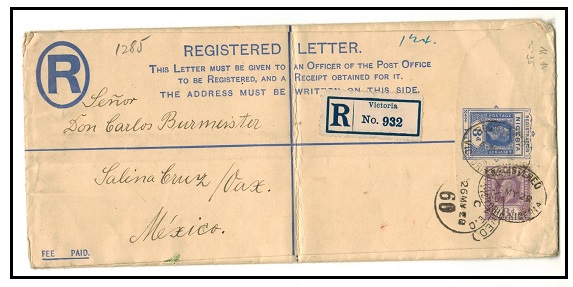 1285
REGISTERED LETTER.
THIS LETTER MUST BE GIVEN TO AN OFFICER OF THE POST OFFICE
TO BE REGISTERED, AND A RECEIPT OBTAINED FOR IT.
THE ADDRESS MUST BE WRITTEN ON THIS SIDE.
R
Señor
Don Carlos Burmeister
Salina Cruz/Oax.
México.
R
Victoria
No. 932
POSTAGE
REGISTERED
60
FEE PAID.